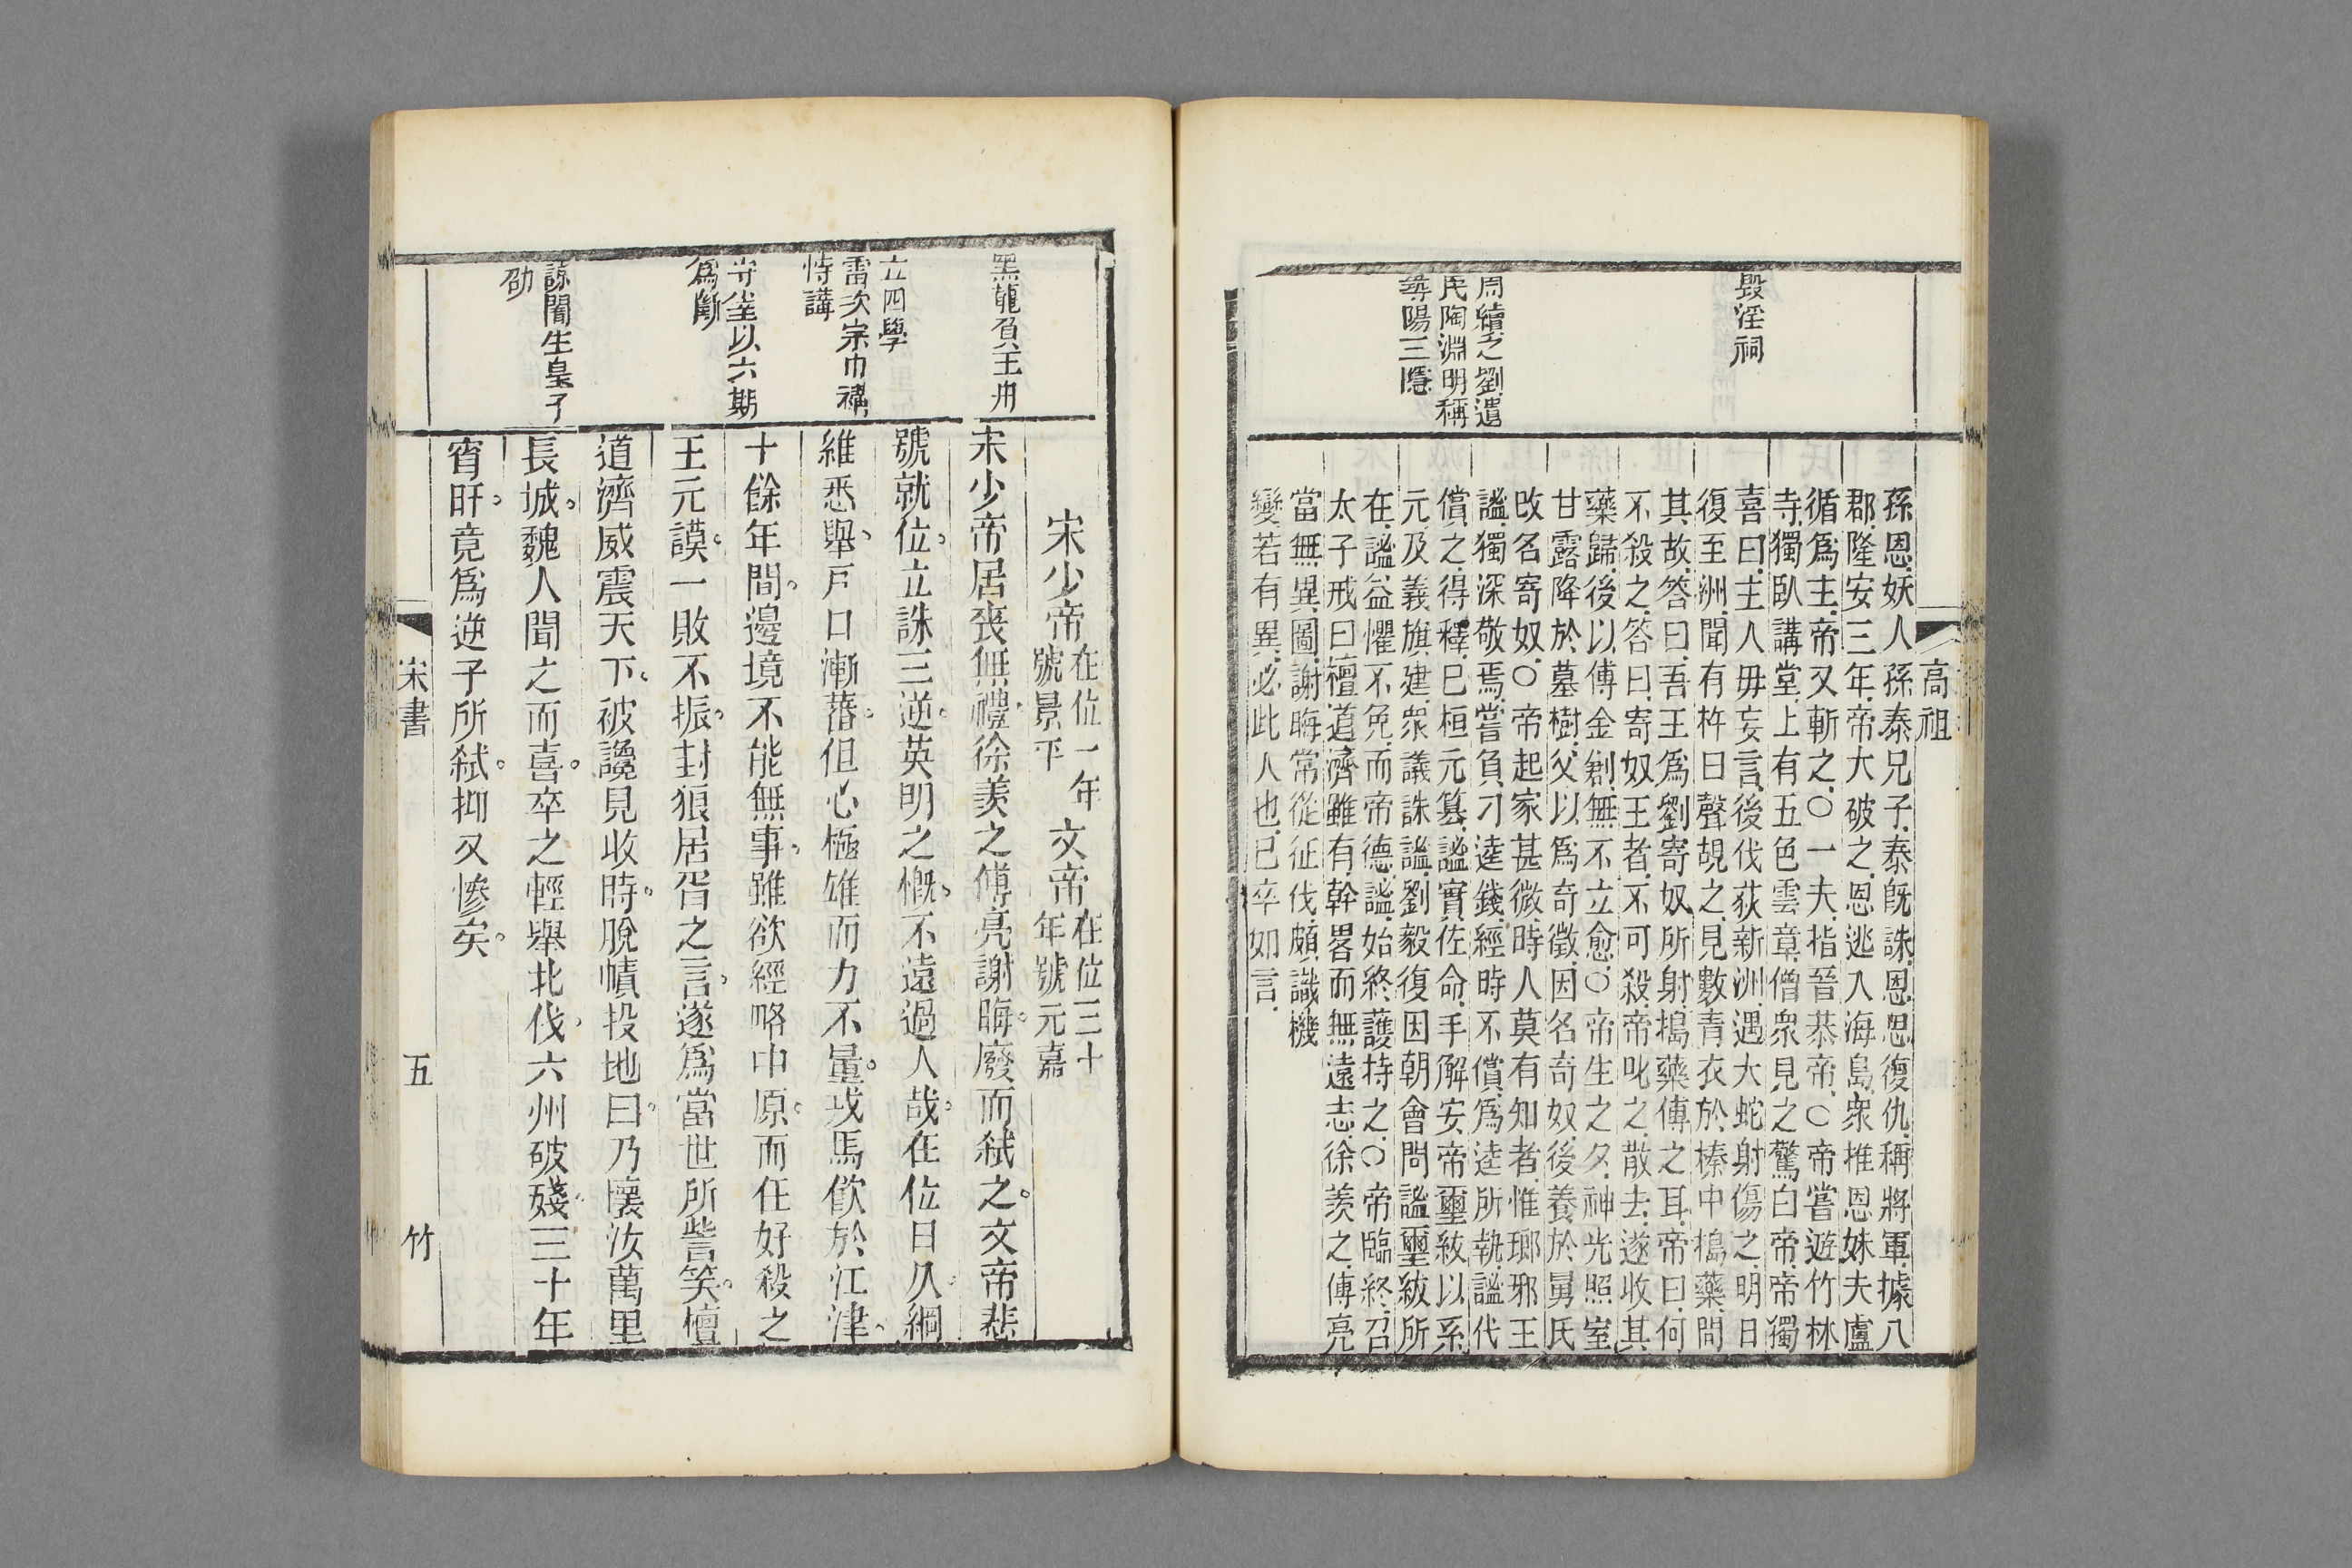 高祖
毀淫祠
周續之劉遺
民陶淵明稱
潯陽三隱
孫恩妖人孫泰兄子泰旣誅恩思復仇稱將軍據八
郡隆安三年帝大破之恩逃入海島衆推恩妹夫盧
循爲主帝又斬之○一夫指晉恭帝○帝嘗遊竹林
寺獨臥講堂上有五色雲章僧衆見之驚白帝帝獨
喜曰主人毋妄言後伐荻新洲遇大蛇射傷之明日
復至洲聞有杵臼聲覘之見數青衣於榛中搗藥問
其故答曰吾王爲劉寄奴所射搗藥傅之耳帝曰何
不殺之答曰寄奴王者不可殺帝叱之散去遂收其
藥歸後以傅金創無不立愈○帝生之夕神光照室
甘露降於墓樹父以爲奇徵因名奇奴後養於舅氏
改名寄奴○帝起家甚微時人莫有知者惟瑯邪王
謐獨深敬焉嘗負刁逵錢經時不償爲逵所執謐代
償之得釋巳桓元篡謐實佐命手解安帝璽紱以系
元及義旗建衆議誅謐劉毅復因朝會問謐璽紱所
在謐益懼不免而帝德謐始終護持之○帝臨終召
太子戒曰檀道濟雖有幹畧而無遠志徐羨之傅亮
當無異圖謝晦常從征伐頗識機
變若有異必此人也已卒如言
黑龍負王舟
立四學
雷次宗巾褠
侍講
守宰以六期
爲斷
諒闇生皇子
劭
宋少帝在位一年號景平文帝在位三十年號元嘉
宋少帝居喪無禮徐羨之傅亮謝晦廢而弑之文帝悲
號就位立誅三逆英明之慨不遠過人哉在位日久綱
維悉舉戸口漸蕃但心極雄而力不量戎馬飮於江津
十餘年間邊境不能無事雖欲經略中原而任好殺之
王元謨一敗不振封狼居胥之言遂爲當世所訾笑檀
道濟威震天下被讒見收時脫幘投地曰乃壞汝萬里
長城魏人聞之而喜卒之輕舉北伐六州破殘三十年
宵旰竟爲逆子所弑抑又慘矣
宋書
五
竹